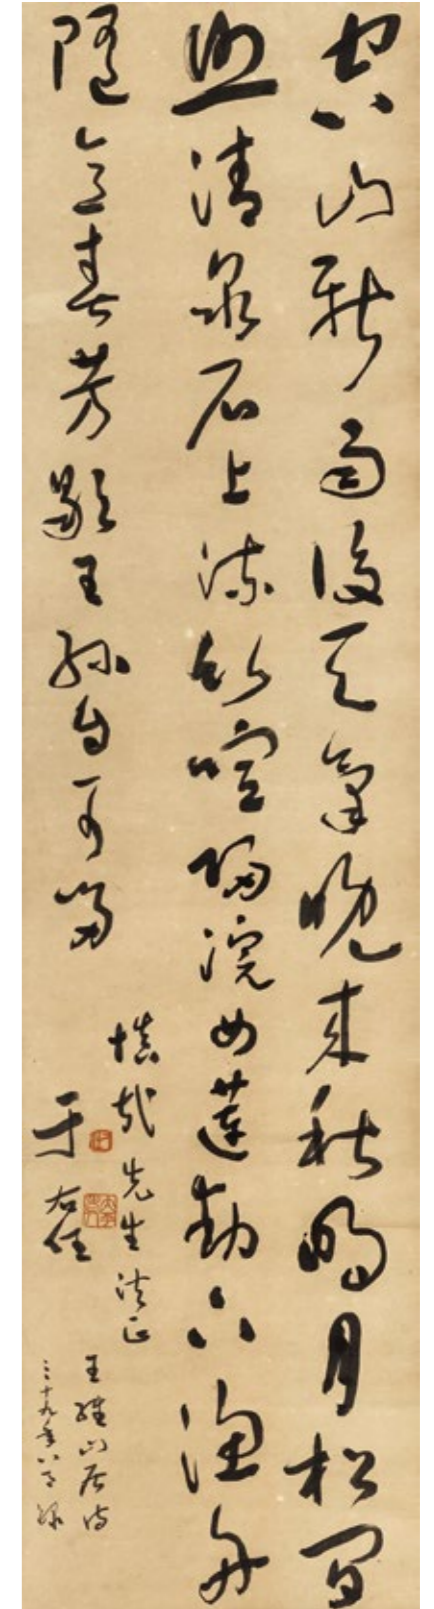 空山新雨後天氣晚來秋明月松間
照清泉石上流竹喧歸浣女蓮動下漁舟
隨意春芳歇王孫自可留
慎哉先生法正
于右任
王維山居詩
三十九年八月